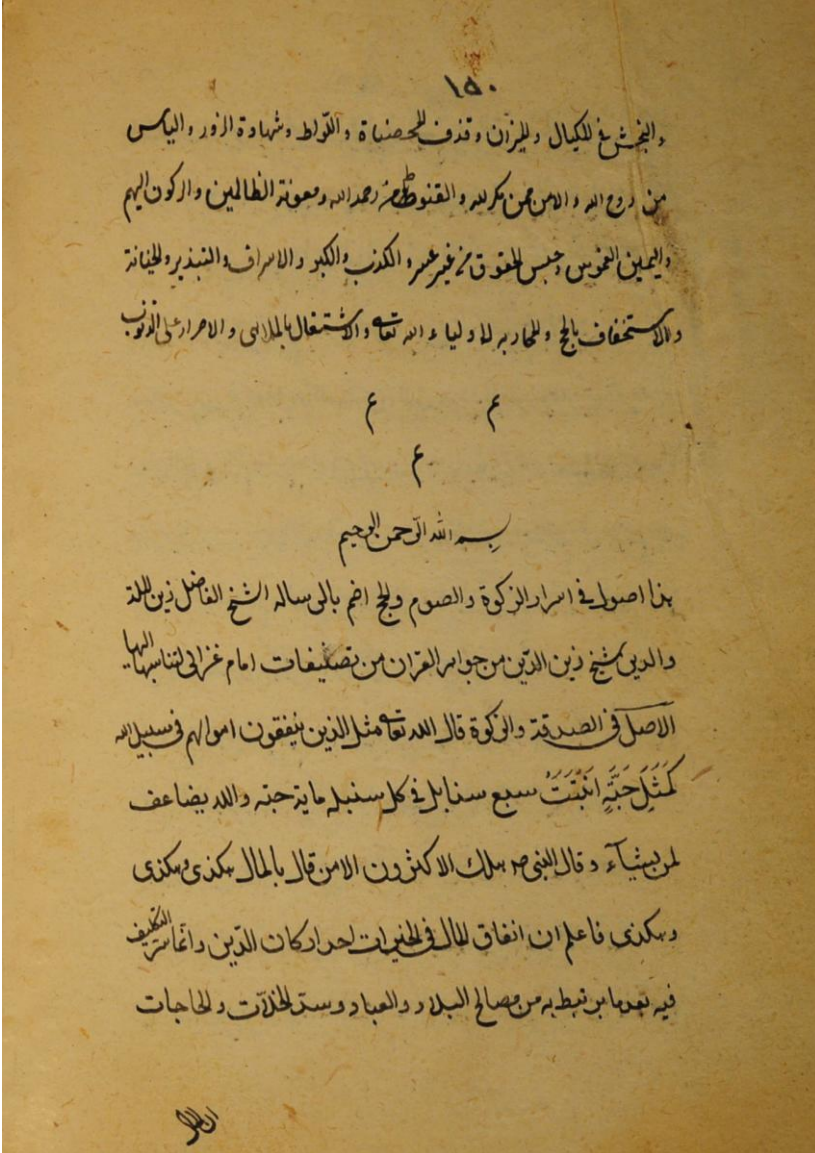 ١٥٠
والبخس في المكيال والميزان وقذف المحصناة واللواط وشهادة الزور والياس
من روح الله والامن من مكر الله والقنوط من رحمة الله ومعونة الظالمين والركون اليهم
واليمين الغموس وحبس الحقوق من غير عسر والكذب والكبر والاسراف والتبذير والخيانة
والاستخفاف بالحج والمحاربه لاولياء الله تعا والاشتغال بالملاهى والاصرار على الذنوب
م م
م
بسم الله الرحمن الرحيم
هذا اصول في اسرار الزكوة والصوم والحج اضم بالى ساله الشيخ الفاضل زين الملة
والدين شيخ زين الدين من جواهر القران من تصنيفات امام غزالى لتناسبها اليها
الاصل في الصدقة والزكوة قال الله تعا مثل الذين ينفقون اموالهم في سبيل الله
كَمَثَلِ حَبَّةٍ انْبَتَتْ سبع سنابل في كل سنبله ماية حبته والله يضاعف
لمن يشآء وقال النبى ص هلك الاكثرون الا من قال بالمال هكذى وهكذى
وهكذى فاعلم ان انفاق المال فى الخيرات احد اركان الدين وانما سر التكليف
فيه بعد ما يرتبط به من مصالح البلاد والعباد وسد الخلات والحاجات